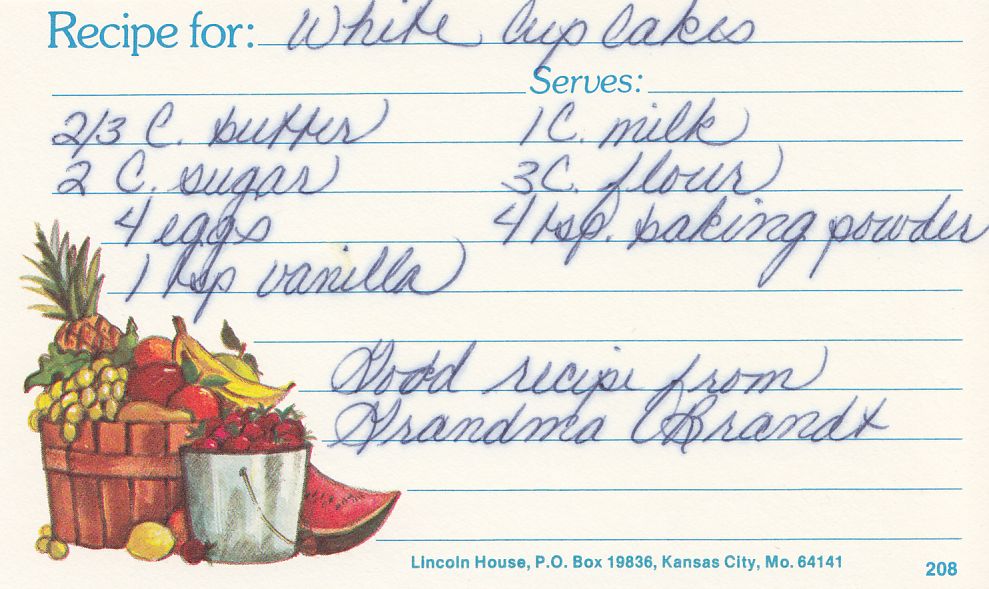 Recipe for: White Cupcakes
Serves:
2/3 C. butter 1 C. milk
2 C. sugar 3 C. flour
4 eggs 4 tsp. baking powder
1 tsp vanilla
Good recipe from
Grandma Brandt
Lincoln House, P.O. Box 19836, Kansas City, Mo. 64141
208